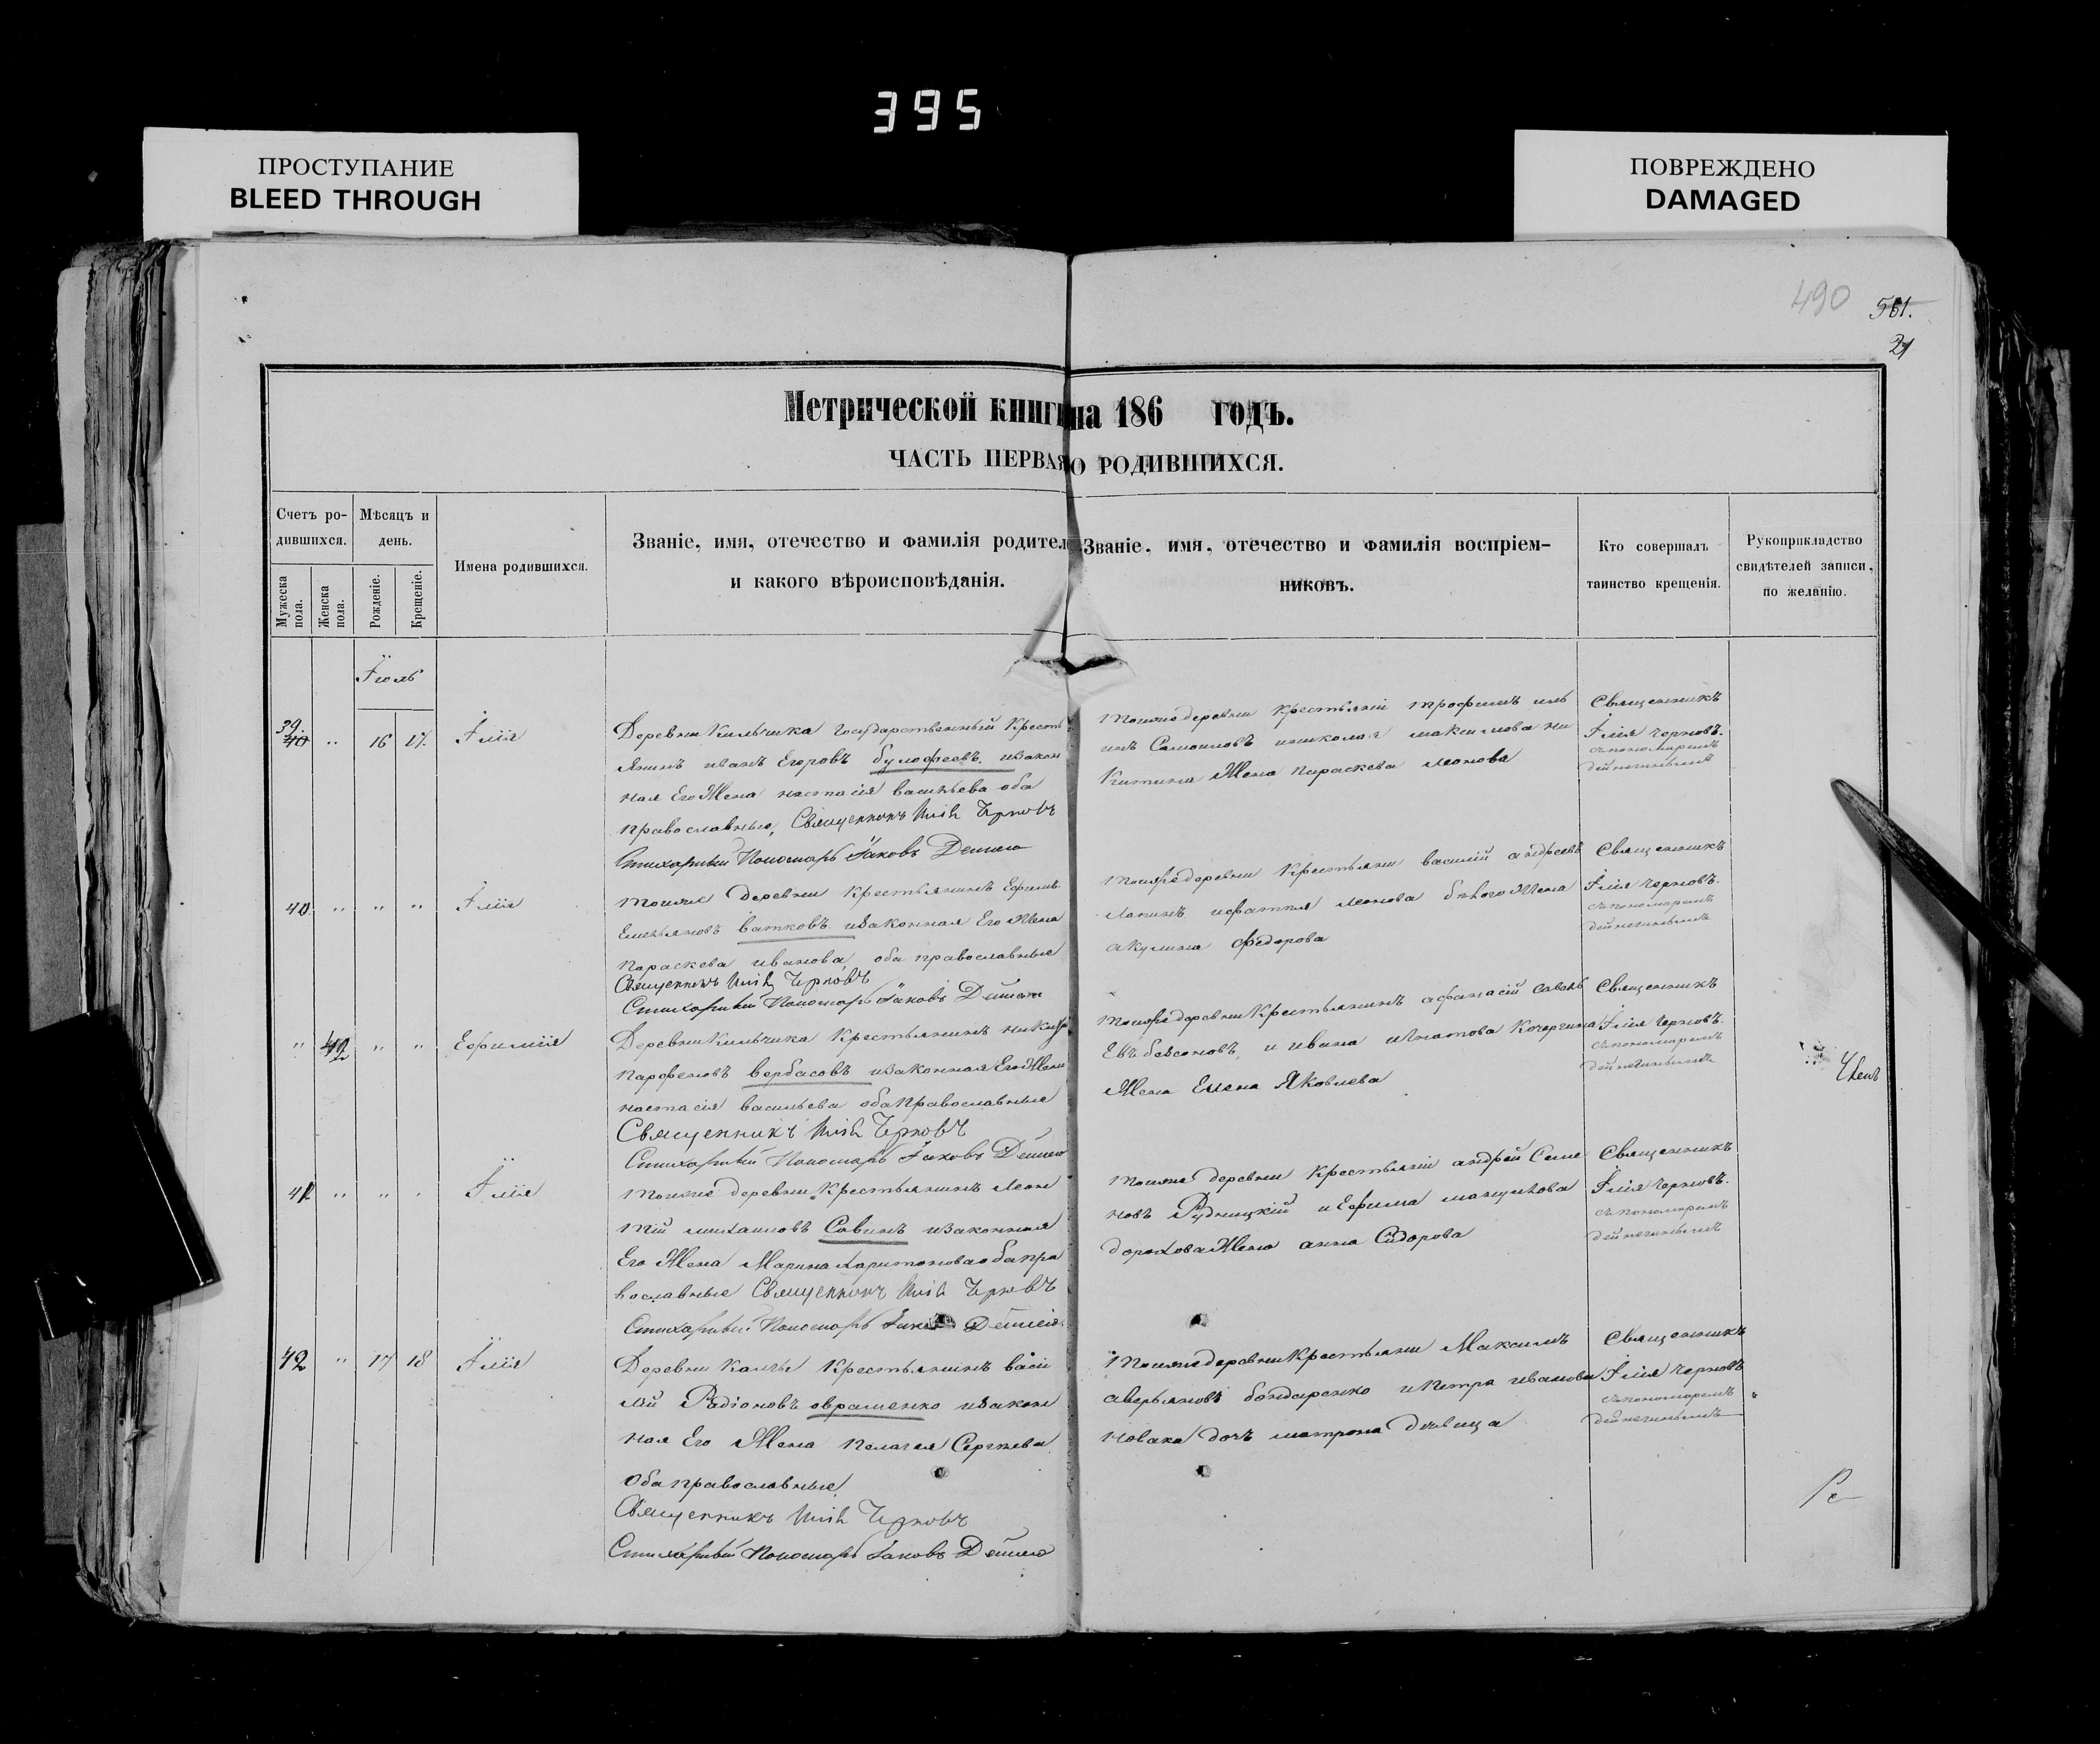 395
ПРОСТУПАНИЕ
BLEED THROUGH
ПОВРЕЖДЕНО
DAMAGED
490
561.
21
Метрической книги на 186 годъ.
ЧАСТЬ ПЕРВАЯ О РОДИВШИХСЯ.
Счетъ ро-
дившихся.
Мужеска пола.
Женска пола.
Мѣсяцъ и
день.
Рожденіе.
Крещеніе.
Имена родившихся.
Званіе, имя, отечество и фамилія родител
и какого вѣроисповѣданія.
Званіе, имя, отечество и фамилія воспріем-
никовъ.
Кто совершалъ
таинство крещенія.
Рукоприкладство
свидѣтелей записи,
по желанію.
Іюль
39. 40 " 16 17. Іліа
Деревни Кильчика государственный Кресть
янинъ иванъ Егоровъ булофеевъ. изакон
ная Его Жена настасія васильева оба
православные, Священникъ Илія Черновъ
Стихарный Пономарь Іаковъ
тойже деревни Крестьянін трофимъ
инъ Самоиловъ николая максимова ни
Китина Жена параскева леонова
Священникъ
Ілія Черновъ.
съ пономаремъ
40. " " " Ілія
тойже деревни Крестьянинъ Ефимъ
Емельяновъ ватковъ. изаконная Его Жена
параскева иванова, оба православные
Священникъ Илія Черновъ
Стихарный Пономарь Іаковъ
тойже деревни Крестьянин василій андреевъ
леонова Жена
акулина федорова
Священникъ
Ілія Черновъ.
съ пономаремъ
" 42 " " Ефимія
Деревни Кильчика Крестьянинъ
парфеновъ вербасовъ изаконная Его Жена
настасія васильева оба Православные
Священникъ Илія Черновъ
Стихарный Пономарь Іаковъ
тойже деревни Крестьянинъ афанасій савель
Евъ и ивана игнатова Кочергина
Жена Елена Яковлева
Священникъ
Ілія Черновъ.
съ пономаремъ
Член
41 " " Ілія
тойже деревни Крестьянинъ Леон
тій михаиловъ Савинъ изаконная
Его Жена Марина харитонова оба пра
вославные Священникъ Илія Черновъ
Стихарный Пономарь
тойже деревни Крестьянін андрей Семе
новъ Рудницкій и Ефима
дорохова Жена анна Сидорова
Священникъ
Ілія Черновъ.
съ пономаремъ
42 " 17 18 Ілія
Деревни Крестьянинъ васи
лій Радіоновъ овраменко изакон
ная Его Жена пелагея Сергѣева
Оба православные.
Священникъ Илія Черновъ
Стихарный Пономарь Іаковъ
тойже деревни Крестьянин Максимъ
аверьяновъ бондаренко и петра иванова
новака дочъ матрона дѣвица
Священникъ
Ілія Черновъ
съ пономаремъ